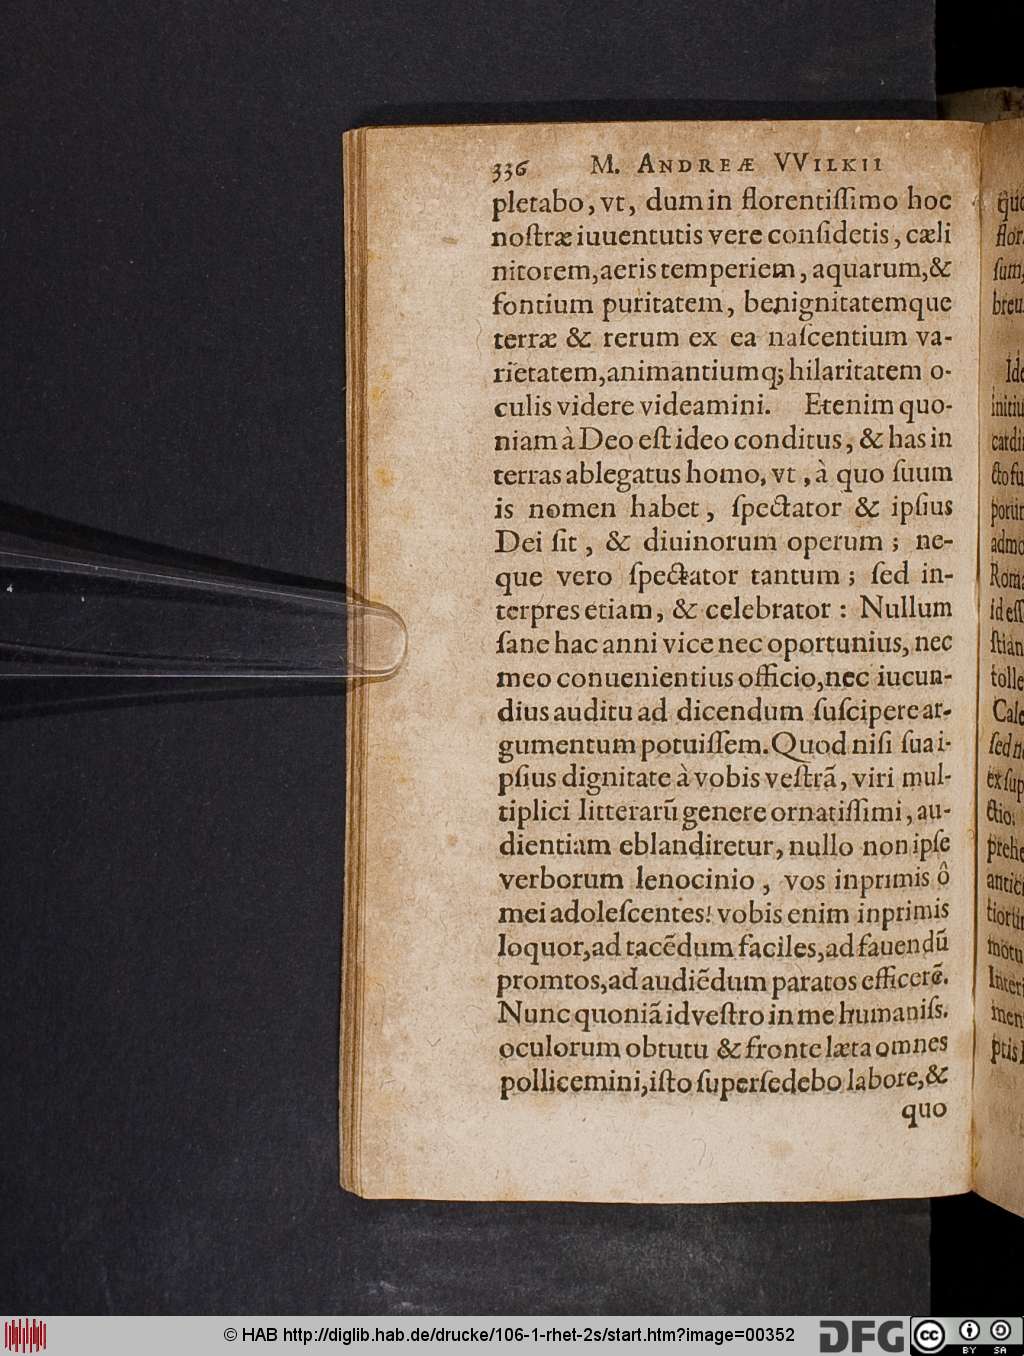 336 M. ANDREÆ VVILKII
pletabo, vt, dum in florentiſſimo hoc
noſtræ iuuentutis vere conſidetis, cæli
nitorem, aeris temperiem, aquarum, &
fontium puritatem, benignitatemque
terræ & rerum ex ea naſcentium va-
rietatem, animantiumq; hilaritatem o-
culis videre videamini. Etenim quo-
niam à Deo eſt ideo conditus, & has in
terras ablegatus homo, vt, à quo ſuum
is nomen habet, ſpectator & ipſius
Dei ſit, & diuinorum operum; ne-
que vero ſpectator tantum; ſed in-
terpres etiam, & celebrator: Nullum
ſane hac anni vice nec oportunius, nec
meo conuenientius officio, nec iucun-
dius auditu ad dicendum ſuſcipere ar-
gumentum potuiſſem. Quod niſi ſua i-
pſius dignitate à vobis veſtrã, viri mul-
tiplici litterarũ genere ornatiſſimi, au-
dientiam eblandiretur, nullo non ipſe
verborum lenocinio, vos inprimis ô
mei adoleſcentes! vobis enim inprimis
loquor, ad tacẽdum faciles, ad fauendũ
promtos, ad audiẽdum paratos efficerẽ.
Nunc quoniã id veſtro in me humaniſs.
oculorum obtutu & fronte læta omnes
pollicemini, iſto ſuperſedebo labore, &
quo
flor.
ſum,
breu
initiu
cardi
cto fu
admo
Roma
id eſſ
ſtian
tolle
Cale
ſed n
ex ſup
ctio:
prehe
antici
motu
Interi
men
ptis
© HAB http://diglib.hab.de/drucke/106-1-rhet-2s/start.htm?image=00352
DFG
cc
BY SA